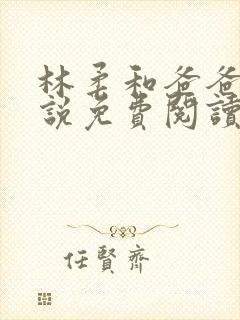 林柔和爸爸
説免費閱讀
任賢齊